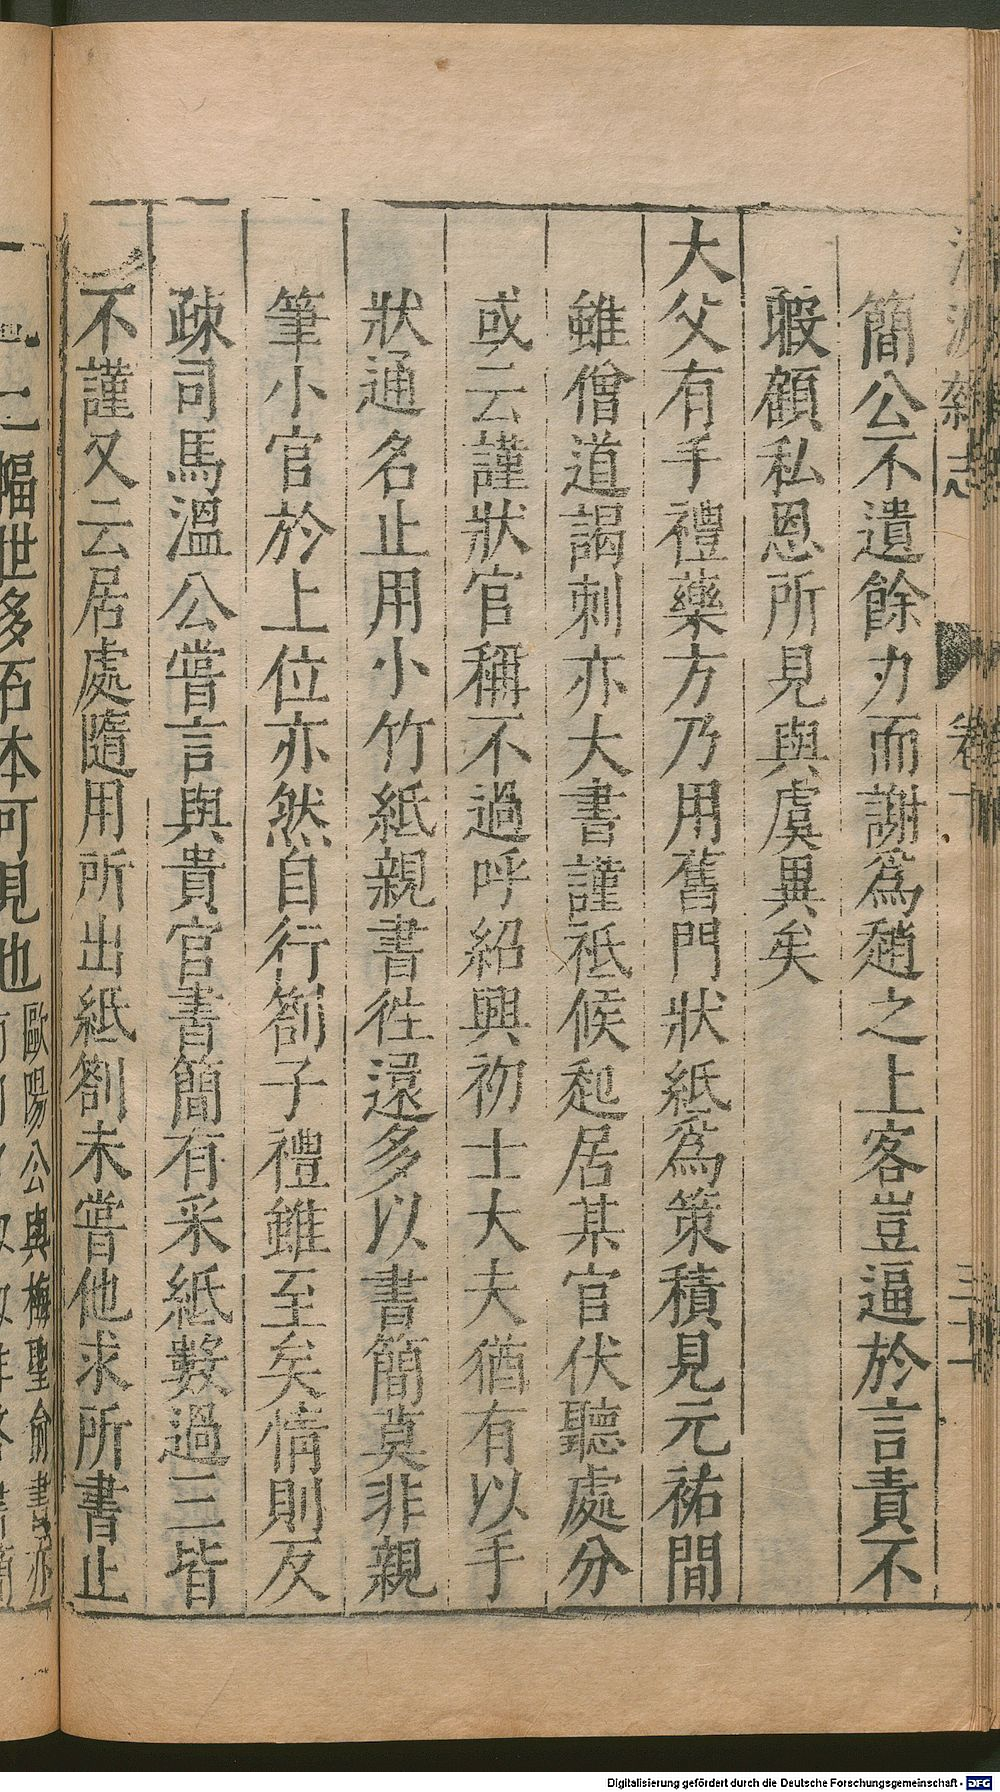 清波雜志 卷十 三十一
簡公不遺餘力而謝為趙之上客豈逼於言責不
暇顧私恩所見與虞異矣
大父有手禮藥方乃用舊門狀紙為策積見元祐間
雖僧道謁刺亦大書謹祗候起居某官伏聽處分
或云謹狀官稱不過呼紹興初士大夫猶有以手
狀通名止用小竹紙親書徃還多以書簡莫非親
筆小官於上位亦然自行劄子禮雖至矣情則反
疎司馬溫公嘗言與貴官書簡有采紙數過三皆
不謹又云居處隨用所出紙劄未嘗他求所書止
一二幅世多石本可見也歐陽公與梅聖俞書亦
Digitalisierung gefördert durch die Deutsche Forschungsgemeinschaft - DFG